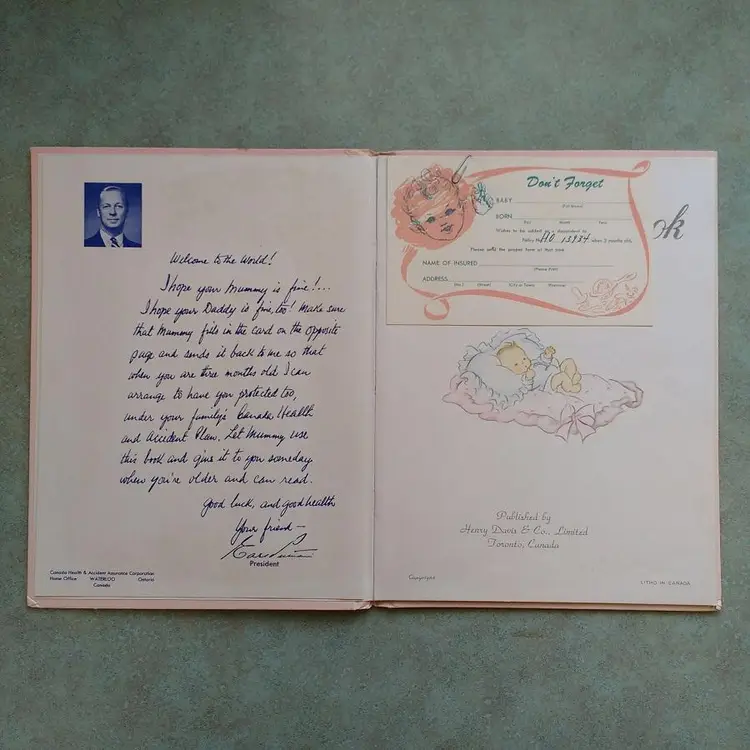 Welcome to the World!
I hope your Mummy is fine!...
I hope your Daddy is fine, too! Make sure
that Mummy fills in the card on the opposite
page and sends it back to me so that
when you are three months old I can
arrange to have you protected too,
under your family's Canada Health
and Accident Plan. Let Mummy use
this book and give it to you someday
when you're older and can read.
Good luck, and good health
Your friend—
President
Canada Health & Accident Assurance Corporation
Home Office WATERLOO Ontario
Canada
Don't Forget
BABY
(Full Name)
BORN
Day Month Year
Wishes to be added as a dependent to
Policy No. 13934 when 3 months old.
Please send the proper form at that time
NAME OF INSURED
(Please Print)
ADDRESS
(No.) (Street) (City or Town) (Province)
ok
Published by
Henry Davis & Co., Limited
Toronto, Canada
Copyright
LITHO IN CANADA